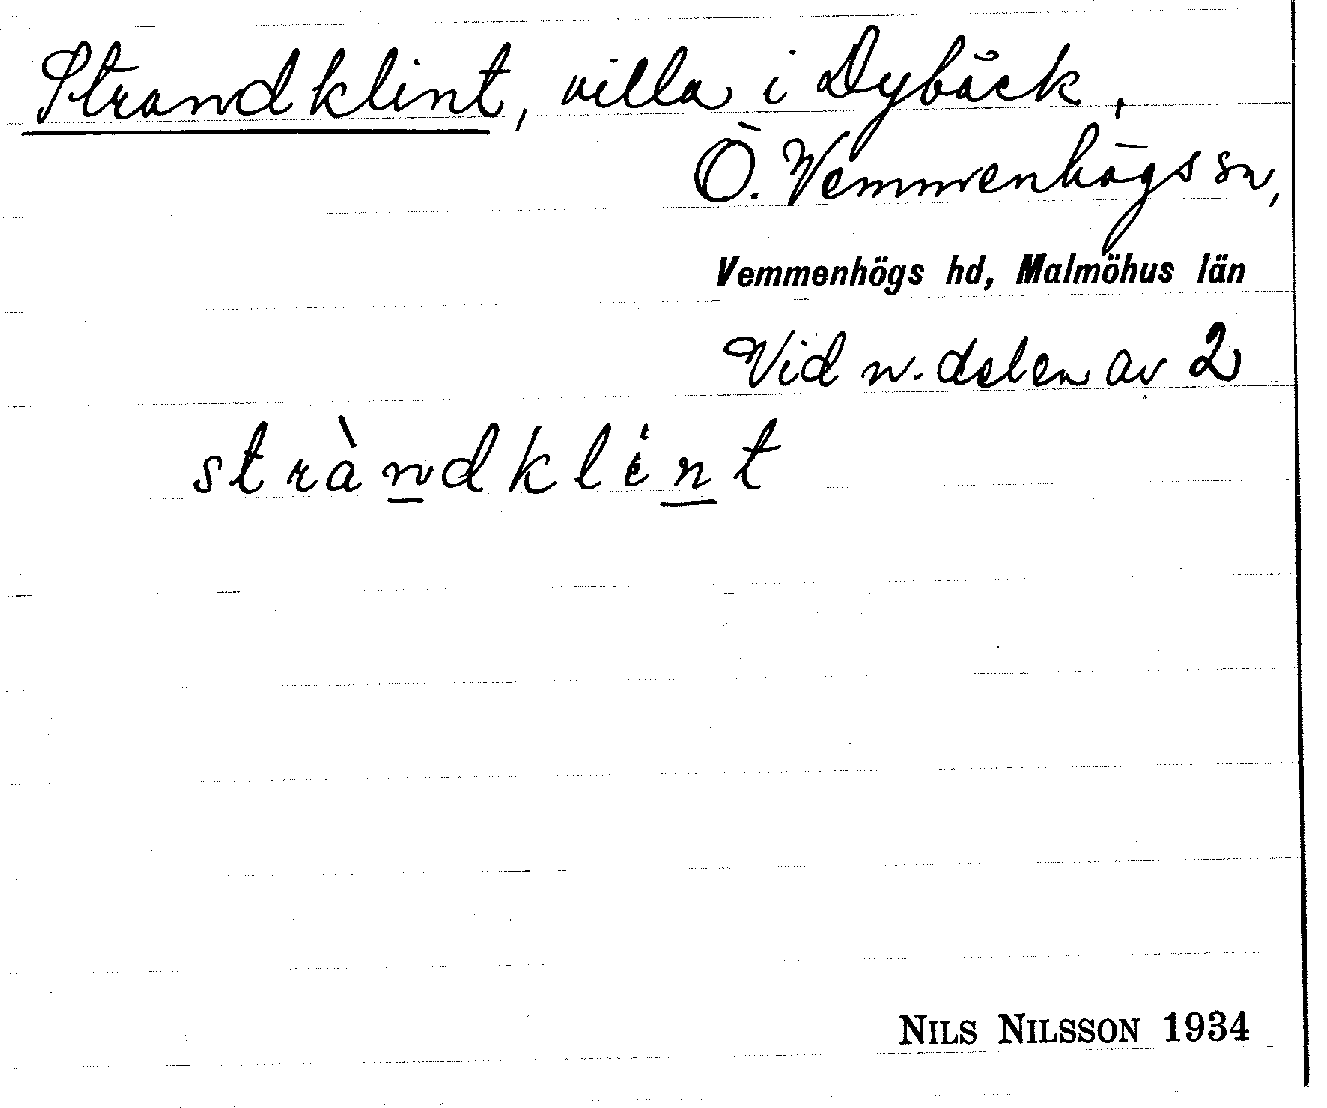 Strandklint, villa i Dybäck,
Ö. Vemmenhögs sn,
Vemmenhögs hd, Malmöhus län
Vid n. delen av 2
stràndklint
NILS NILSSON 1934